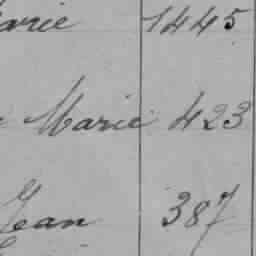 arie 1445
Marie 423
Jean 387